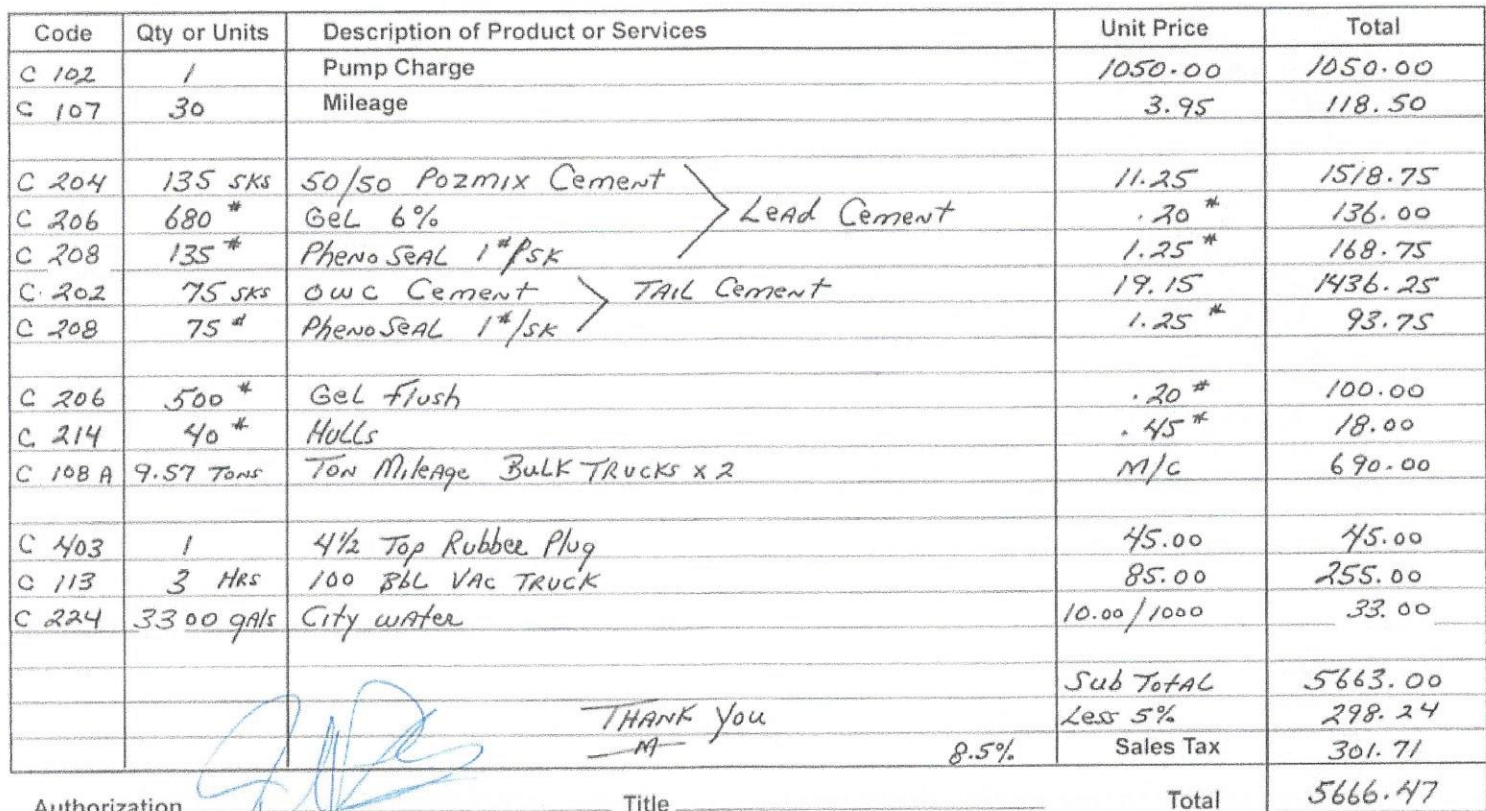 Code Qty or Units Description of Product or Services Unit Price Total
C 102 1 Pump Charge 1050.00 1050.00
C 107 30 Mileage 3.95 118.50
C 204 135 SKS 50/50 Pozmix Cement 11.25 1518.75
Lead Cement
C 206 680 # Gel 6% .20 # 136.00
C 208 135 # PhenoSeal 1#/SK 1.25 # 168.75
C 202 75 SKS OWC Cement TAIL Cement 19.15 1436.25
C 208 75 # PhenoSeal 1#/SK 1.25 # 93.75
C 206 500 # Gel Flush .20 # 100.00
C 214 40 # Hulls .45 # 18.00
C 108 A 9.57 Tons Ton Mileage Bulk Trucks x 2 M/C 690.00
C 403 1 4½ Top Rubber Plug 45.00 45.00
C 113 3 HRS 100 Bbl VAC TRUCK 85.00 255.00
C 224 3300 gals City water 10.00/1000 33.00
Sub Total 5663.00
THANK You Less 5% 298.24
M 8.5% Sales Tax 301.71
Authorization Title Total 5666.47